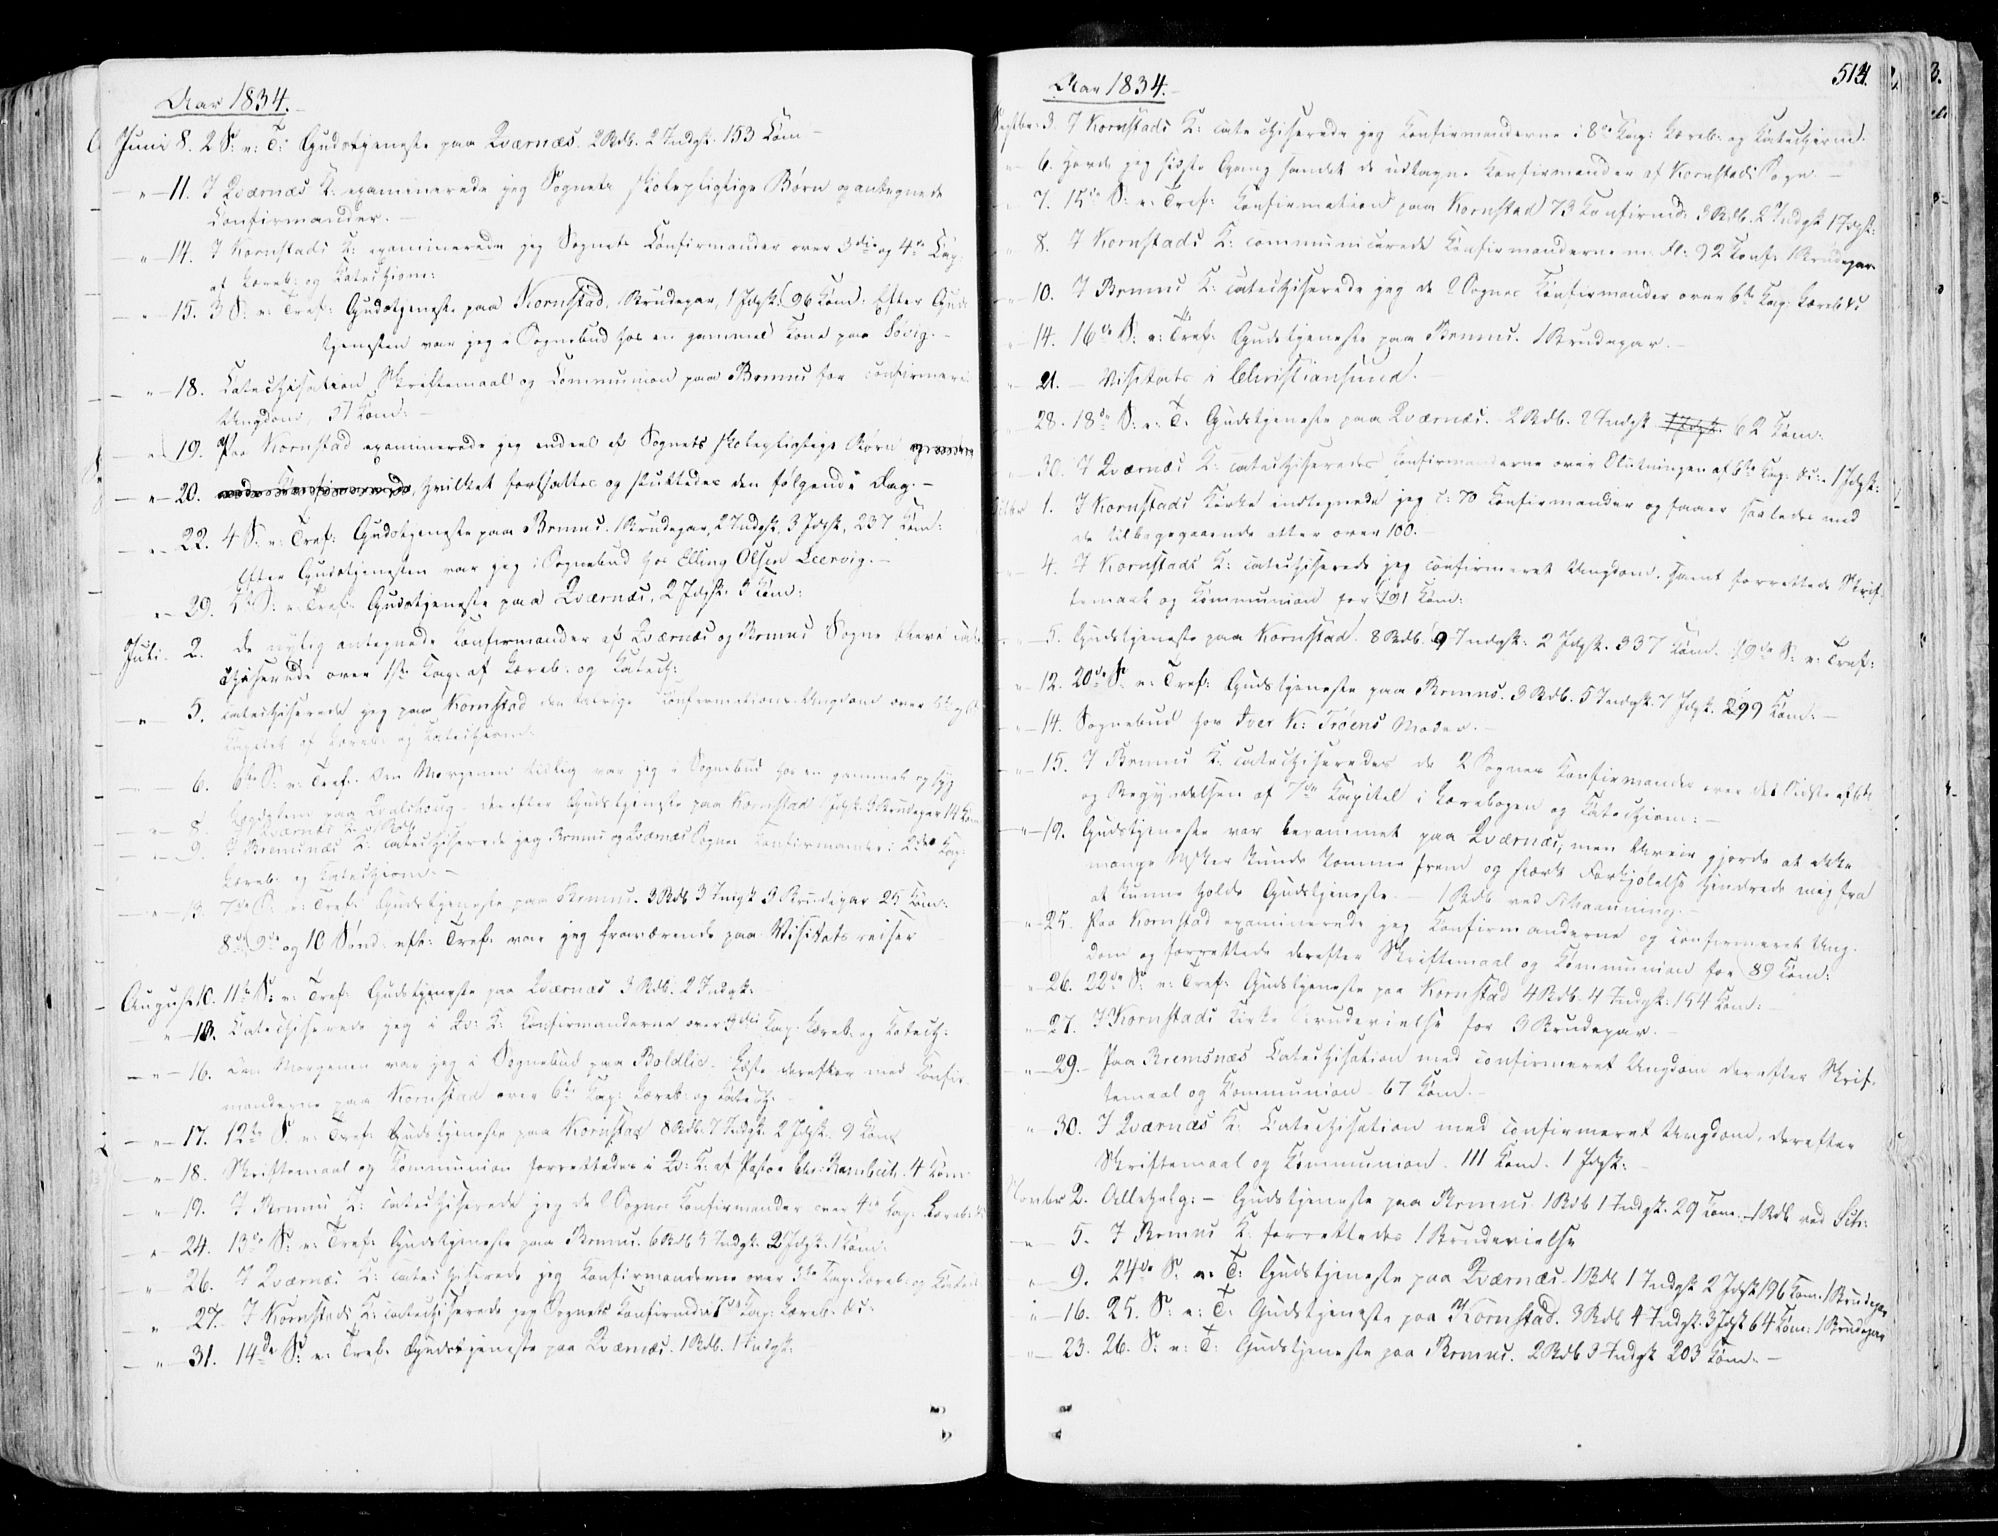 Aar 1834.
Juni 8. 2 S: e: T: Gudstjeneste paa Qværnæs. 2 Rdb. 2 Indgk. 153 Com –
" 11. I Qværnæs K: examinerede jeg Sognets skolepligtige Børn og antegnede
Confirmander. –
" 14. I Kornstads K: examinerede jeg Sognets Confirmander over 3die og 4de Cap.
af Læreb: og Catechism:
" 15. 3 S: e: Tref: Gudstjeneste paa Kornstad, Brudepar, 1 Jdgsk. 96 Com: Efter Guds
tjenesten var jeg i Sognebud hos en gammel Kone paa Søvig. –
" 18. Catechisation Skriftemaal og Communion paa Bremsn for confirmeret
Ungdom, 51 Com: –
" 19. Paa Kornstad examinerede jeg endeel af Sognets skolepligtige Børn
" 20. hvilket fortsattes og sluttedes den følgende Dag. –
" 22. 4 S: e: Tref: Gudstjeneste paa Bremsn. 1 Brudepar, 2 Indgk. 3 Jdgsk. 237 Com:
Efter Gudstjenesten var jeg i Sognebud hos Elling Olsen Leervig. –
" 29. 5te S: e: Tref: Gudstjeneste paa Qværnæs. 2 Jdgsk. 5 Com:
Juli. 2. De nylig antegnede Confirmander af Qværnæs og Bremsn Sogne bleve cate
chiserede over 1ste Cap. af Læreb: og Catech:
" 5. Catechiserede jeg paa Kornstad den talrige Confirmations-Ungdom over 5te og
Capitel af Læreb: og Catechism:
6. 6te S: e: Tref: Om Morgenen tidlig var jeg i Sognebud hos en gammel og syg
paa Qvalshoug – derefter Gudstjeneste paa Kornstad 1 Jdgsk. 3 Brudepar 14 Com
" 8. I Qværnæs K. 1 Rdb.
" 9. I Bremsnæs K: catechiserede jeg Bremsn og Qværnæs Sogns Confirmander i 2det Cap:
Læreb: og Catechism: –
" 13. 7de S: e: Tref: Gudstjeneste paa Bremsn. 3 Rdb 3 Ingk 3 Brudepar 25 Com:
8de, 9de og 10 Sønd: eft: Tref: var jeg fraværende paa Visitats reiser
August 10. 11te S: e: Tref: Gudstjeneste paa Qværnæs 3 Rdb. 2 Indgk:
" 13. Catechiserede jeg i Qv: K: Confirmanderne over 3die Cap: Læreb: og Catech:
" 16. Om Morgenen var jeg i Sognebud paa Boldlie. Læste derefter med Confir-
manderne paa Kornstad over 6te Cap: Læreb: og Catech: –
" 17. 12te S. e: Tref: Gudstjeneste paa Kornstad 8 Rdb. 7 Indgk. 2 Jdgsk. 9 Com
" 18. Skriftemaal og Communion forrettedes i Qv: K: af Pastor Chr: Rambech. 4 Com
" 19. I Bremsn K: catechiserede jeg de 2 Sognes Confirmander over 4de Cap: Læreb:
" 24. 13de S: e: Tref: Gudstjeneste paa Bremsn. 6 Rdb 5 Indgk: 2 Jdgsk: 1 Com:
" 26. I Qværnæs K: catechiserede jeg Confirmanderne over 5te Cap: Læreb: og Catech
" 27. I Kornstads K: catechiserede jeg Sognets Confirmd: i 7de Cap: Læreb: &c:
" 31. 14de S: e: Tref: Gudstjeneste paa Qværnæs. 1 Rdb. 1 Indgk:
Aar 1834.
514.
Septbr: 3. I Kornstads K: catechiserede jeg Confirmanderne i 8de Cap: Læreb: og Catechism.
" 6. Havde jeg sidste Gang samlet de udtagne Confirmander af Kornstads Sogn. –
7. 15de S: e: Tref: Confirmation paa Kornstad 73 Confirmd: 3 Rdb. 2 Indgk 1 Jdgsk:
" 8. I Kornstads K: communicerede Confirmanderne m. fl: 92 Conf: 1 Brudepar
10. I Bremsn K: catechiserede jeg de 2 Sognes Confirmander over 6te Cap: Læreb &c
" 14. 16de S: e: Tref: Gudstjeneste paa Bremsn. 1 Brudepar. –
" 21. – Visitats i Christiansund.
28. 18de S: e: T: Gudstjeneste paa Qværnæs. 2 Rdb. 2 Indgk 1 Jdgsk. 62 Com:
30. I Qværnæs K: catechiseredes Confirmanderne over Slutningen af 6te Cap: &c: – 1 Jdgsk:
Octbr 1. I Kornstads Kirke indtegnede jeg c: 70 Confirmander og faaer saaledes med
de tilbagegaaende atter over 100. –
" 4. I Kornstads K: catechiserede jeg confirmeret Ungdom, samt forrettede Skrif-
temaal og Communion for 191 Com:
" 5. Gudstjeneste paa Kornstad. 8 Rdb. 9 Indgsk: 2 Jdgsk. 337 Com. 19de S: e: Tref:
" 12. 20de S: e: Tref: Gudstjeneste paa Bremsn. 3 Rdb. 5 Indgk. 7 Jdgk. 299 Com: –
" 14. Sognebud hos Iver K: Trøens Moder. –
" 15. I Bremsn K: catechiseredes de 2 Sognes Confirmander over det Sidste af 6te
og Begyndelsen af 7de Capitel i Lærebogen og Catechism: –
" 19. Gudstjeneste var berammet paa Qværnæs, men Uveir gjorde at ikke
mange Msker kunde komme frem og stærk Forkjølelse hindrede mig fra
at kunne holde Gudstjeneste. – 1 Rdb ved Maanning. –
" 25. Paa Kornstad examinerede jeg Confirmanderne og confirmeret Ung-
dom og forrettede derefter Skriftemaal og Communion for 89 Com:
" 26. 22de S: e: Tref: Gudstjeneste paa Kornstad 4 Rdb. 4 Indgsk: 154 Com:
" 27. I Kornstads Kirke Brudevielse for 3 Brudepar. –
" 29. Paa Bremsnæs Catechisation med confirmeret Ungdom derefter Skrif-
temaal og Communion – 67 Com. –
" 30. I Qværnæs K: Catechisation med confirmeret Ungdom, derefter
Skriftemaal og Communion. 111 Com. 1 Jdgk:
Novbr 2. Allehelg: – Gudstjeneste paa Bremsn. 1 Rdb 1 Indgk: 29 Com. – 1 Rdb ved
5. I Bremsn K: forrettedes 1 Brudevielse
" 9. 24de S: e: T: Gudstjeneste paa Qværnæs. 1 Rdb 1 Indgk 2 Jdgk 196 Com: 1 Brudepar
" 16. 25. S: e: T: Gudstjeneste paa Kornstad. 3 Rdb 4 Indgk. 3 Jdgk 64 Com: 1 Brudepar
" 23. 26. S: e: T: Gudstjeneste paa Bremsn. 2 Rdb 3 Indgk 203 Com: –